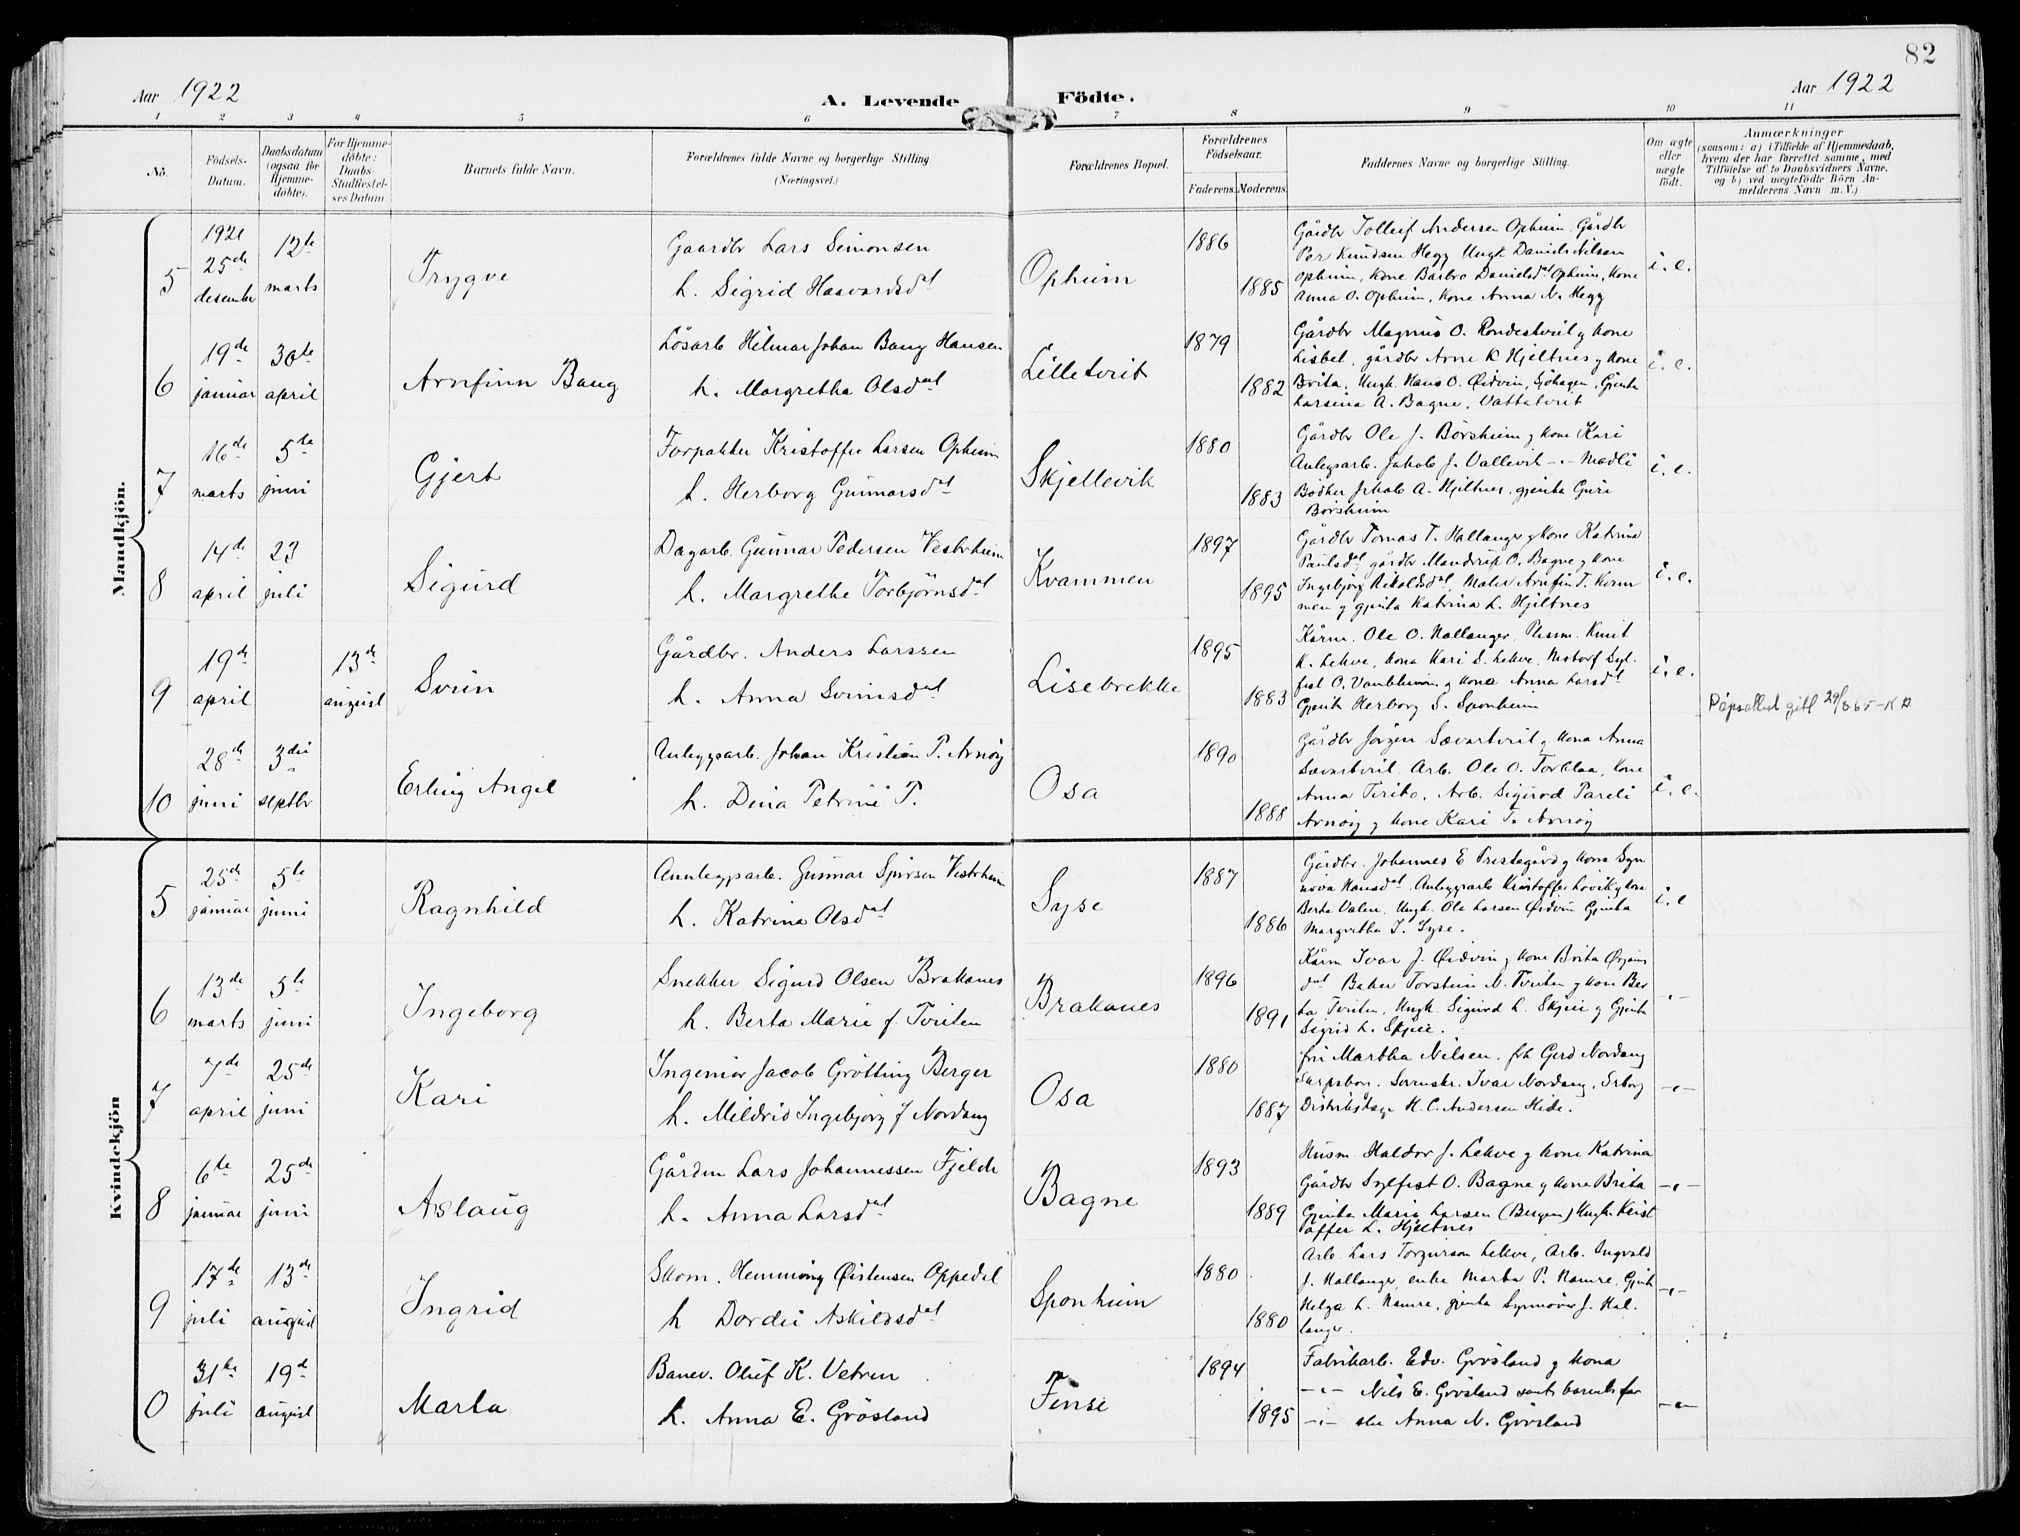 82
Aar 1922
A. Levende Födte.
Aar 1922
1 2 3 4 5 6 7 8 9 10 11
No.
Födsels-
Datum.
Daabsdatum
(ogsaa for
Hjemme-
döbte).
For Hjemme-
döbte:
Daabs-
Stadfæstel-
ses Datum
Barnets fulde Navn.
Forældrenes fulde Navne og borgerlige Stilling.
(Næringsvei.)
Forældrenes Bopæl.
Forældrenes
Födselsaar.
Faderens. Moderens.
Faddernes Navne og borgerlige Stilling.
Om ægte
eller
uægte
födt.
Anmærkninger
(saasom: a) i Tilfælde af Hjemmedaab,
hvem der har forrettet samme, med
Tilföielse af to Daabsvidners Navne.
og b) ved uægtefödte Börn An-
melderens Navn m. V.)
Mandkjön.
5
1921
25de
desember
12te
marts
Trygve
Gaardbr Lars Simonsen
h. Sigrid Haavardsdat
Opheim
1886
1885
Gårdbr Tolleif Andersen Opheim. Gårdbr
Per Knudsen Hegg Ungk. Daniel Nilsen
Opheim, Kone Barbro Danielsdat Opheim, Kone
Anna O. Opheim, Kone Anna N. Hegg
i. e.
6
19de
januar
30te
april
Arnfinn Bang
Lösarb Hilmar Johan Bang Hansen
h. Margretha Olsdat
Lilletveit
1879
1882
Gårdbr Magnus O. Rondestveit g Kone
Lisbet, gårdbr Arne K Hjeltnes g Kone
Brita, Ungk. Hans O. Øidvin, Sjöhagen, Gjenta
Larsina A. Bagne, Vattatveit
i. e.
7
16de
marts
5te
juni
Gjert
Forpakter Kristoffer Larsen Opheim
h. Herborg Gunnarsdat
Skjellevik
1880
1883
Gårdbr Ole J. Börsheim g Kone Kari
Anlegsarb. Jakob J. Vallevik -"- Madli
Bödker Jakob A. Hjeltnes, gjenta Guri
Börsheim
i. e.
8
14de
april
23
juli
Sigurd
Dagarb. Gunnar Pedersen Vestrheim
h. Margrethe Torbjörnsdat
Kvammen
1897
1895
Gårdbr Tomas T. Hallanger g Kone Katrina
Paulsdat gårdbr Mandrup O. Bagne g Kone
Ingebjörg Rikoldsdat, Maler Arnfin T. Kvam
men g gjenta Katrina L. Hjeltnes
i. e.
9
19de
april
13de
august
Svein
Gårdbr. Anders Larssen
h. Anna Sveinsdat
Lisebrekke
1895
1883
Kårm. Ole O. Hallanger, Plassm. Knut
K. Lekve, Kona Kari S. Lekve, Motorf Syl-
fest O. Vambheim g Kona Anna Larsdat
Gjenta Herborg S. Sponheim
i. e.
10
28de
juni
3die
septbr
Erling Angel
Anleggsarb. Johan Kristian P. Arnöy
h. Dina Petrine P.
Osa
1890
1888
Gårdbr Jörgen Sævartveit g Kona Anna
Sævartveit, Arb. Ole O. Torblaa, Kone
Anna, Arb. Sigurd Pareli
Arnöy g Kone Kari T. Arnöy
i. e.
Kvindekjön
5
25de
januar
5te
juni
Ragnhild
Annlegsarb. Gunnar Sjursen Vestrheim
h. Katrina Olsdat
Syse
1887
1886
Gårdbr. Johannes E Prestegård g Kona Syn
növa Hansdat, Anleggsarb Kristoffer Lövik g Kone
Berta Valen, Ungk. Ole Larsen Øidvin Gjenta
Margretha I. Syse.
i. e
6
13de
marts
5te
juni
Ingeborg
Snekker Sigurd Olsen Brakanes
h. Berta Marie f Tveiten
Brakanes
1896
1891
Kårm Ivar J. Øidvin g Kone Brita Ørjans
dat Baker Torstein N. Tveiten g Kone Ber
ta Tveiten, Ungk Sigurd L. Skjeie g Gjenta
Sigrid L. Skjeie.
-"-
7
7de
april
25de
juni
Kari
Ingeniör Jacob Grötting Berger
h. Mildrid Ingebjörg f Nordang
Osa
1880
1887
fru Martha Nilsen, frk Gerd Nordang
Sarpsborg. Ivar Nordang,
Distriktslæge H. C. Andersen Eide.
-"-
8
6te
januar
25de
juni
Aslaug
Gårdm Lars Johannessen Fjelde
h. Anna Larsdat
Bagne
1893
1889
Husm Haldor J. Lekve g Kone Katrina
Gårdbr Sylfest O. Bagne g Kone Brita
Gjenta Marie Larsen (Bergen) Ungk. Krist
offer L. Hjeltnes
-"-
9
17de
juli
13de
august
Ingrid
Skom. Hemming Øistensen Oppedal
h Dordei Askildsdat
Sponheim
1880
1880
Arb. Lars Torgeirson Lekve, Arb. Ingvald
J. Hallanger, enke Marta P. Namre, Gjenta
Helga L. Namre, gjenta Synnöver J. Hal-
langer.
-"-
0
31te
juli
19de
august
Marta
Banev. Oluf K. Vetren
h. Anna E. Grösland
Finse
1894
1895
Fabrikarb. Edv. Grösland g Kona
-"- Nils E. Grösland samt barnets far
-"- Anna N. Grösland
-"-